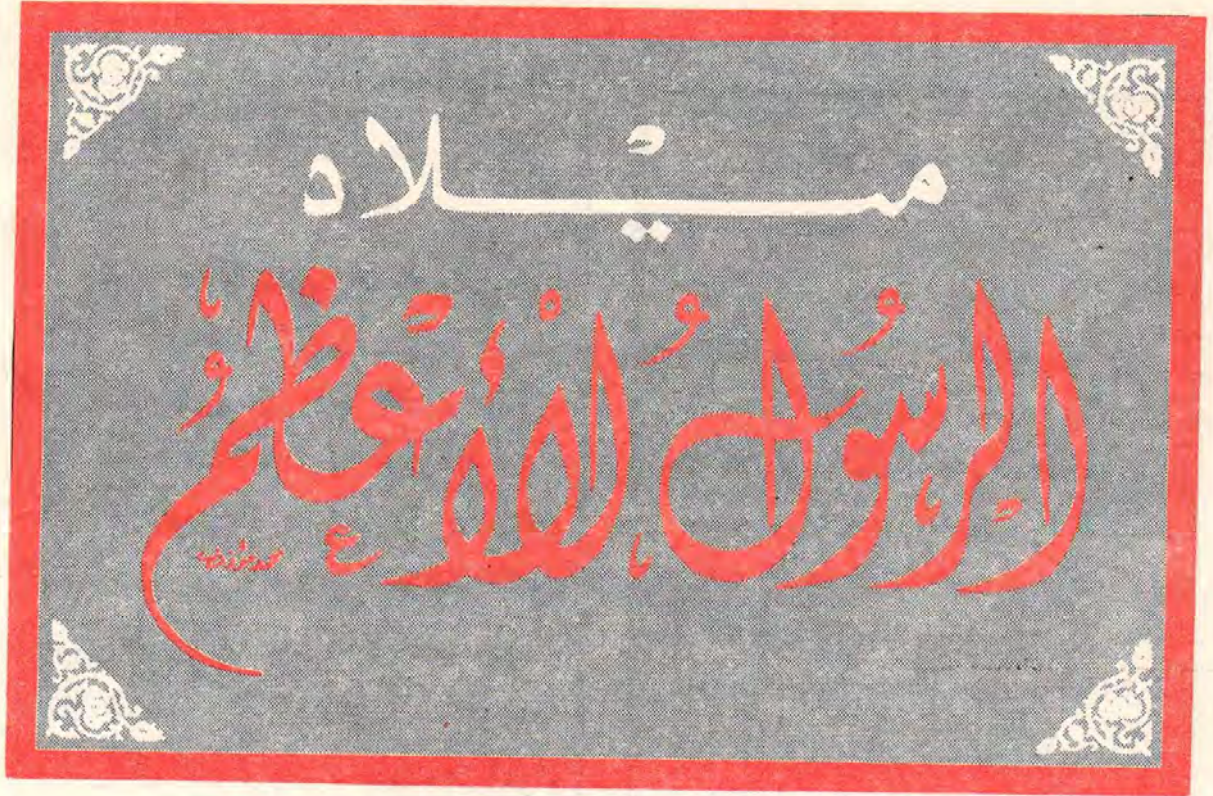 ميلاد
الرسُول الأعظم